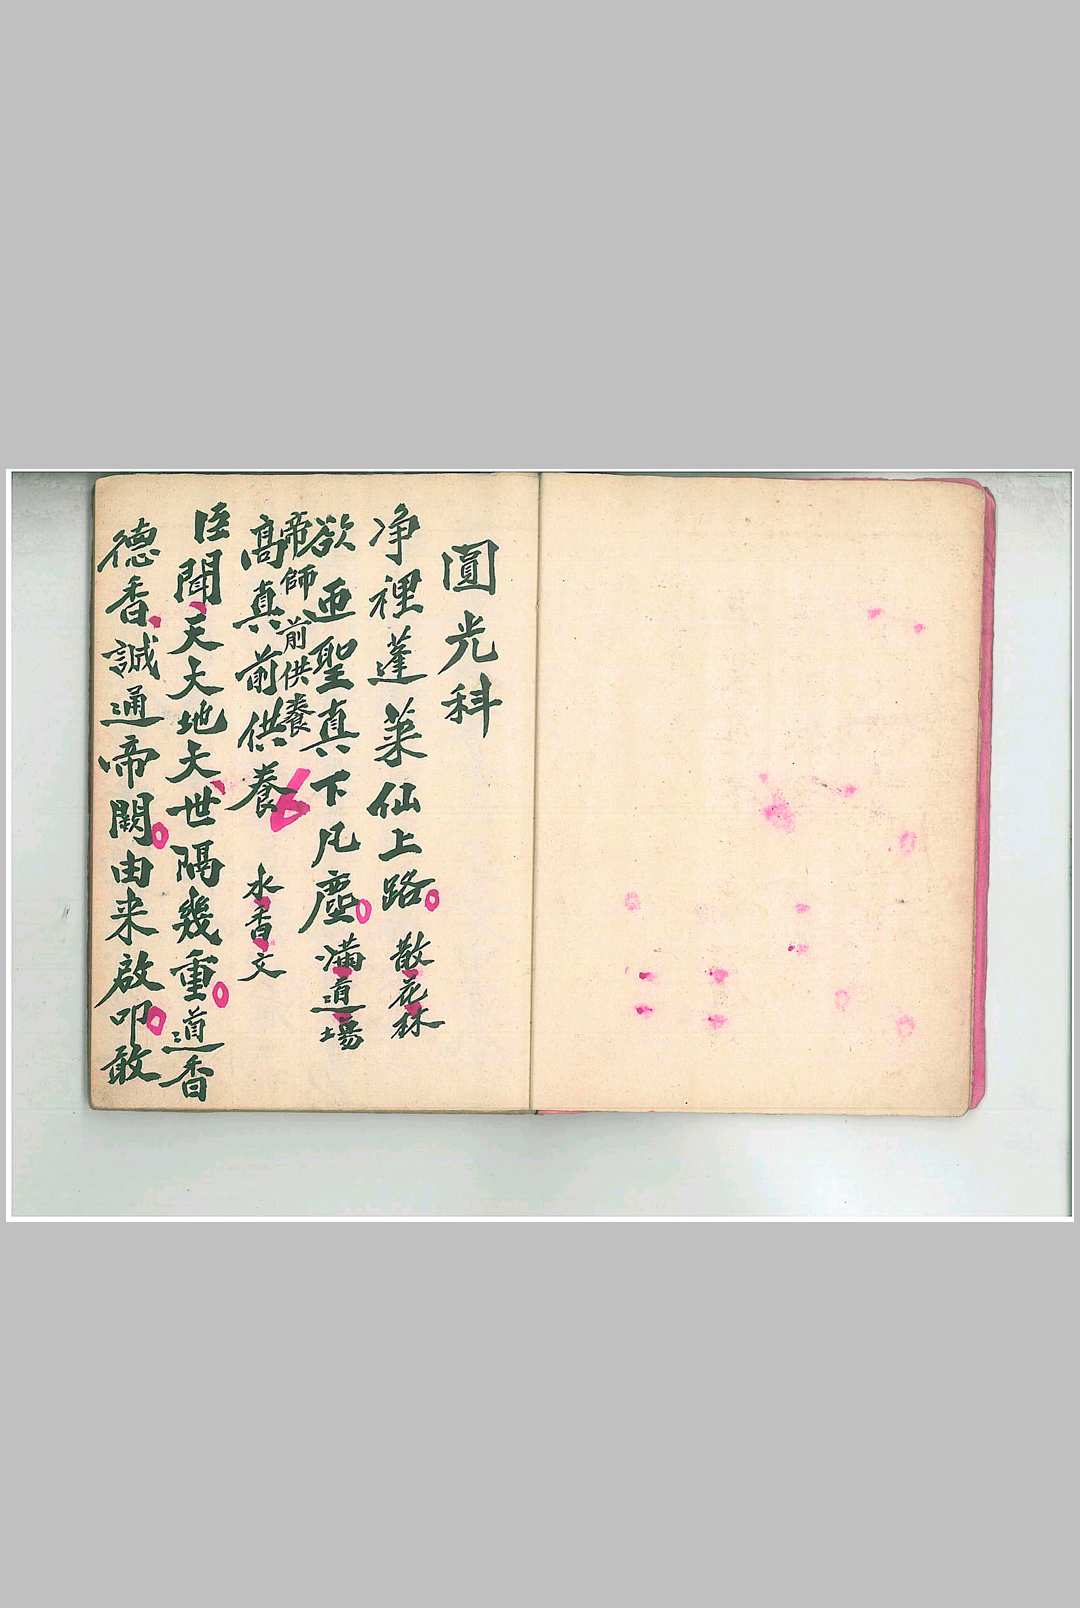 圓光科
净裡蓬萊仙上路 散花林
欲迓聖真下凡塵 滿道場
帝師前供養
高真前供養 水香文
臣聞天大地大世隔幾重道香
德香誠通帝闕由来啟叩敢